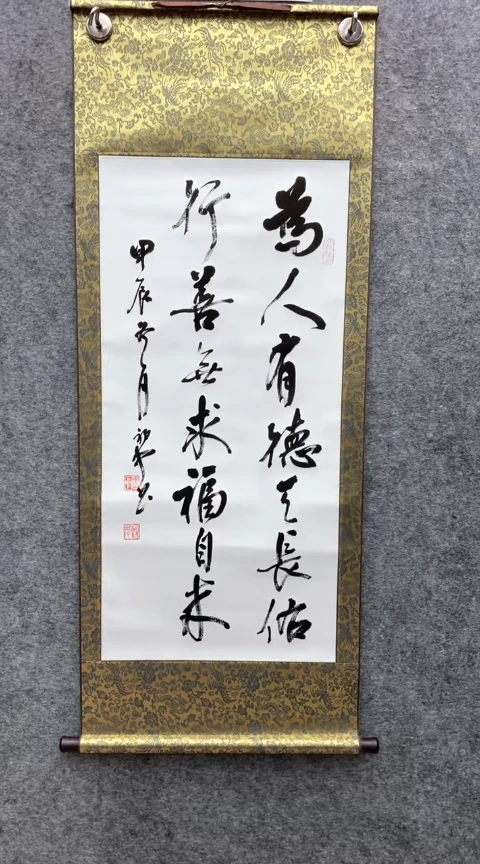 為人有德天長佑
行善無求福自來
甲辰 月 書